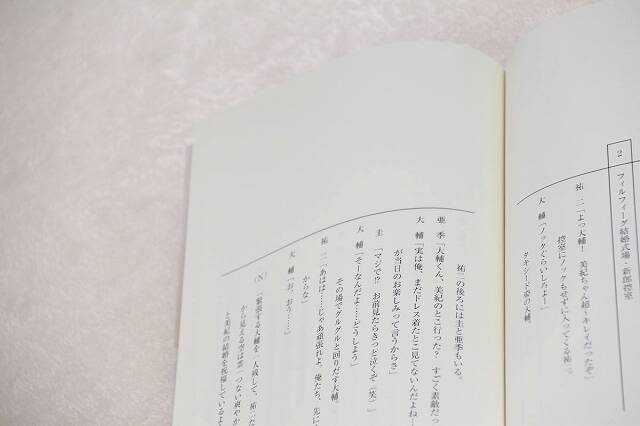 2　フィルフィーグ結婚式場・新郎控室
祐　二「よっ大輔！　美紀ちゃん超～キレイだったぞ」
控室にノックもせずに入ってくる祐二。
大　輔「ノックくらいしろよー」
タキシード姿の大輔。
祐二の後ろには圭と亜季もいる。
亜　季「大輔くん、美紀のとこ行った？　すごく素敵だっ
大　輔「実は俺、まだドレス着たとこ見てないんだよね…
が当日のお楽しみって言うからさ」
圭　「マジで!?　お前見たらきっと泣くぞ（笑）」
大　輔「そーなんだよ……どうしよう」
その場でグルグルと回りだす大輔。
祐　二「あはは……じゃあ頑張れよ。俺たち、先に
からな」
大　輔「お、おう……」
（N）「緊張する大輔を一人残して、祐二た
から見える空は雲一つない爽やか
と美紀の結婚を祝福しているよ